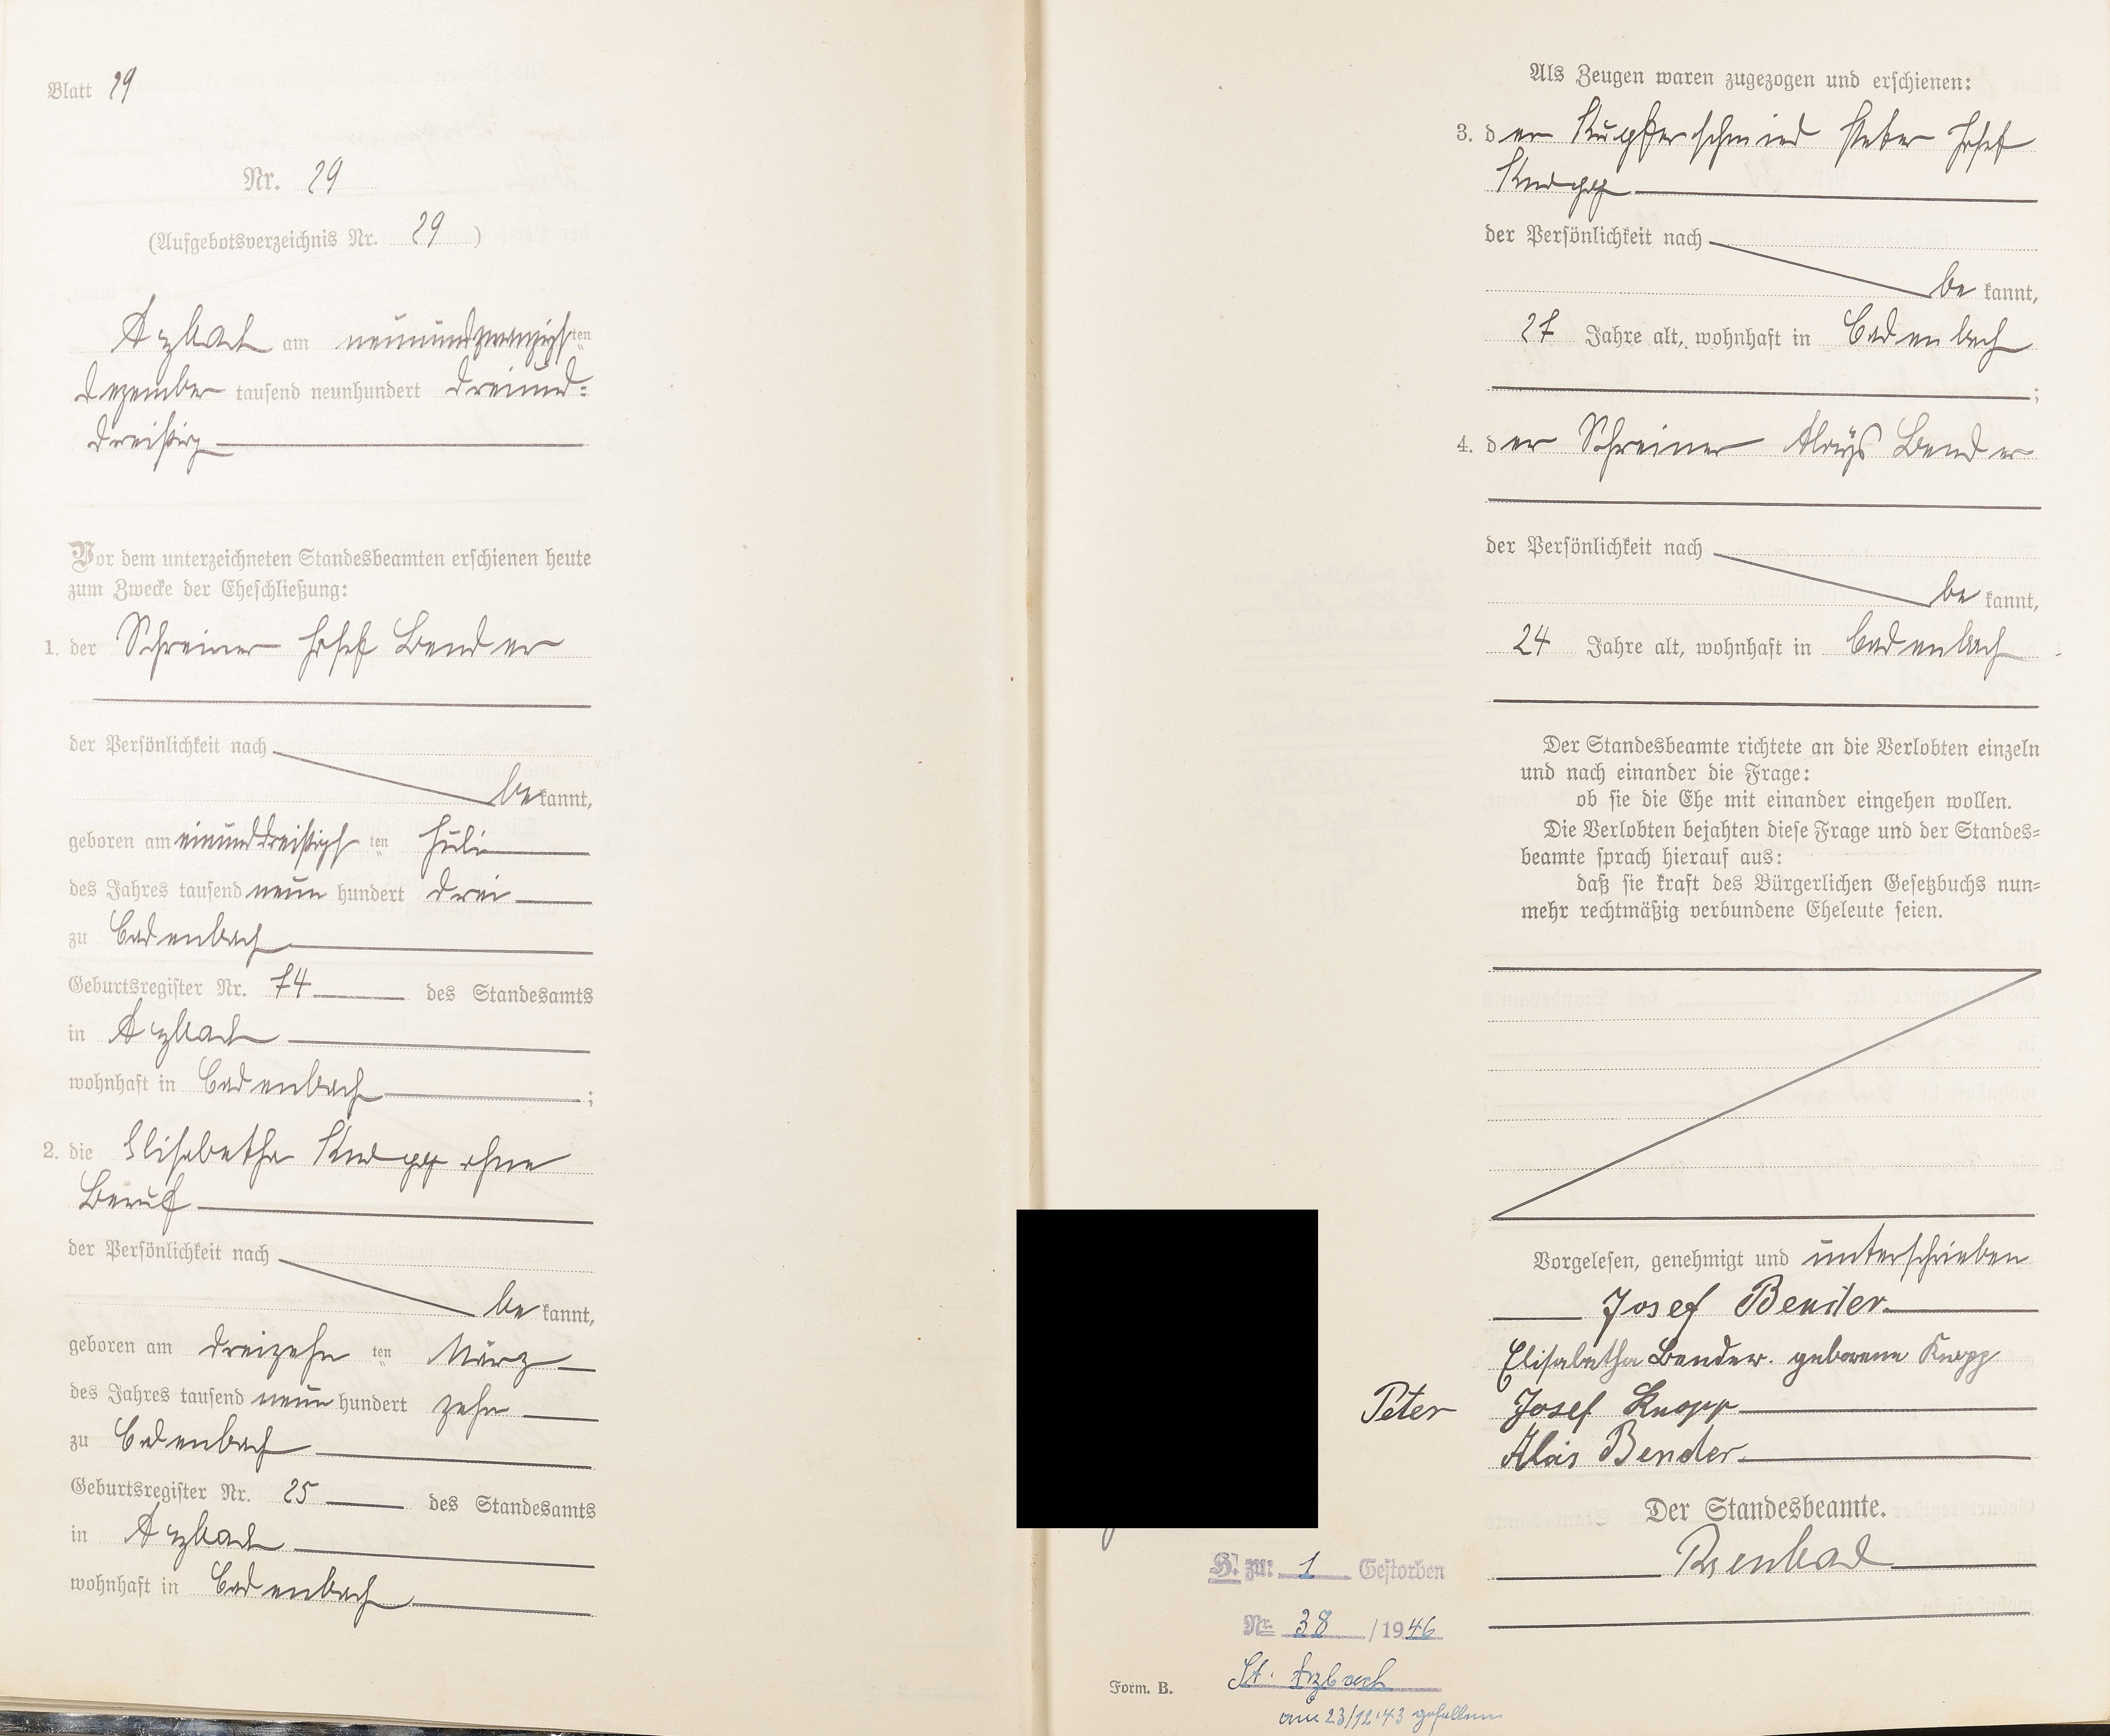 Blatt 29
Nr. 29
(Aufgebotsverzeichnis Nr. 29 )
Arzbach am neunundzwanzigsten
Dezember tausend neunhundert dreiund=
dreißig
Vor dem unterzeichneten Standesbeamten erschienen heute
zum Zwecke der Eheschließung:
1. der Schreiner Josef Bender
der Persönlichkeit nach
bekannt,
geboren am einunddreißigsten Juli
des Jahres tausend neun hundert drei
zu Cadenbach
Geburtsregister Nr. 74 des Standesamts
in Arzbach
wohnhaft in Cadenbach ;
2. die Elisabetha Knopp ohne
Beruf
der Persönlichkeit nach
bekannt,
geboren am dreizehnten März
des Jahres tausend neun hundert zehn
zu Cadenbach
Geburtsregister Nr. 25 des Standesamts
in Arzbach
wohnhaft in Cadenbach
Als Zeugen waren zugezogen und erschienen:
3. der Kupferschmied Peter Josef
Knopp
der Persönlichkeit nach
bekannt,
27 Jahre alt, wohnhaft in Cadenbach
;
4. der Schreiner Aloys Bender
der Persönlichkeit nach
bekannt,
24 Jahre alt, wohnhaft in Cadenbach
Der Standesbeamte richtete an die Verlobten einzeln
und nach einander die Frage:
ob sie die Ehe mit einander eingehen wollen.
Die Verlobten bejahten diese Frage und der Standes=
beamte sprach hierauf aus:
daß sie kraft des Bürgerlichen Gesetzbuchs nun=
mehr rechtmäßig verbundene Eheleute seien.
Vorgelesen, genehmigt und unterschrieben
Josef Bender
Elisabetha Bender geborene Knopp
Peter Josef Knopp
Alois Bender
Der Standesbeamte.
H. zu: 1 Gestorben
Nr. 38 /1946
St. Arzbach
am 23/12.43 gefallen
Form. B.